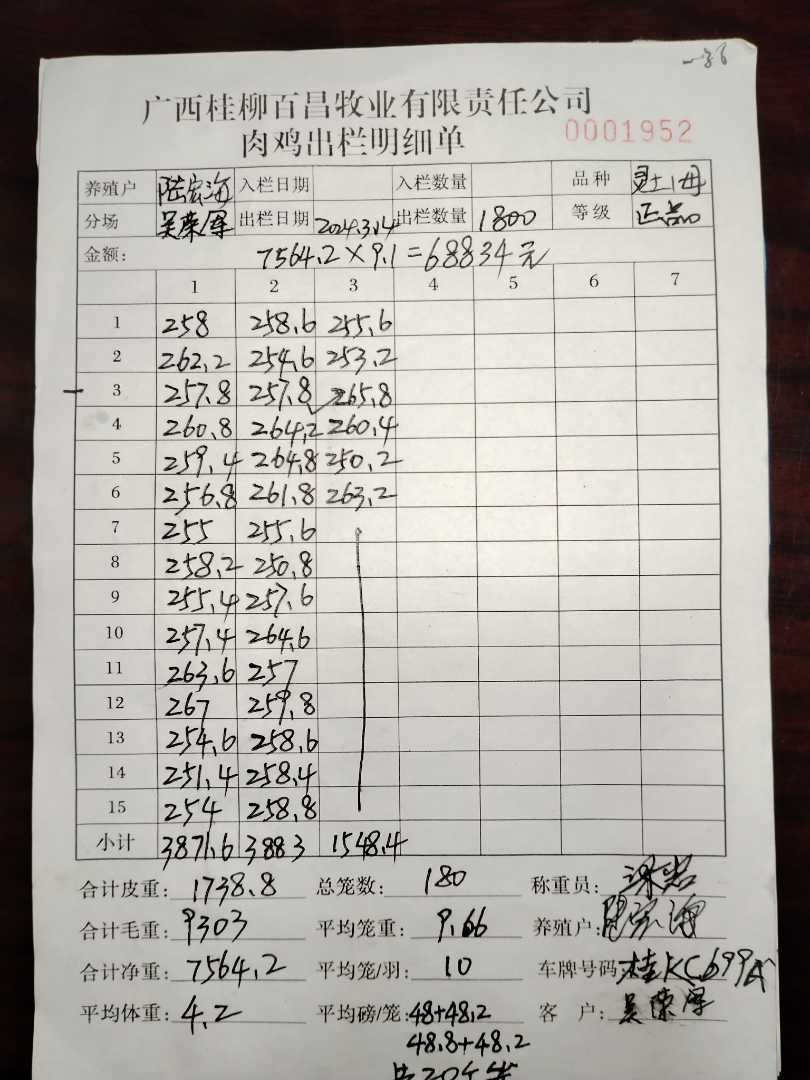 广西桂柳百昌牧业有限责任公司
肉鸡出栏明细单 0001952
养殖户 陆宏海 入栏日期 入栏数量 品种 灵土1母
分场 吴荣厚 出栏日期 2024.3.14 出栏数量 1800 等级 正品
金额: 7564.2×9.1=68834元
1 2 3 4 5 6 7
1 258 258.6 255.6
2 262.2 254.6 253.2
3 257.8 257.8 265.8
4 260.8 264.2 260.4
5 259.4 264.8 250.2
6 256.8 261.8 263.2
7 255 255.6
8 258.2 250.8
9 255.4 257.6
10 257.4 264.6
11 263.6 257
12 267 259.8
13 254.6 258.6
14 251.4 258.4
15 254 258.8
小计 3871.6 3883 1548.4
合计皮重: 1738.8 总笼数: 180 称重员:
合计毛重: 9303 平均笼重: 9.66 养殖户: 陆宏海
合计净重: 7564.2 平均笼/羽: 10 车牌号码: 桂KC699A
平均体重: 4.2 平均磅/笼: 48+48.2 客 户: 吴荣厚
48.8+48.2